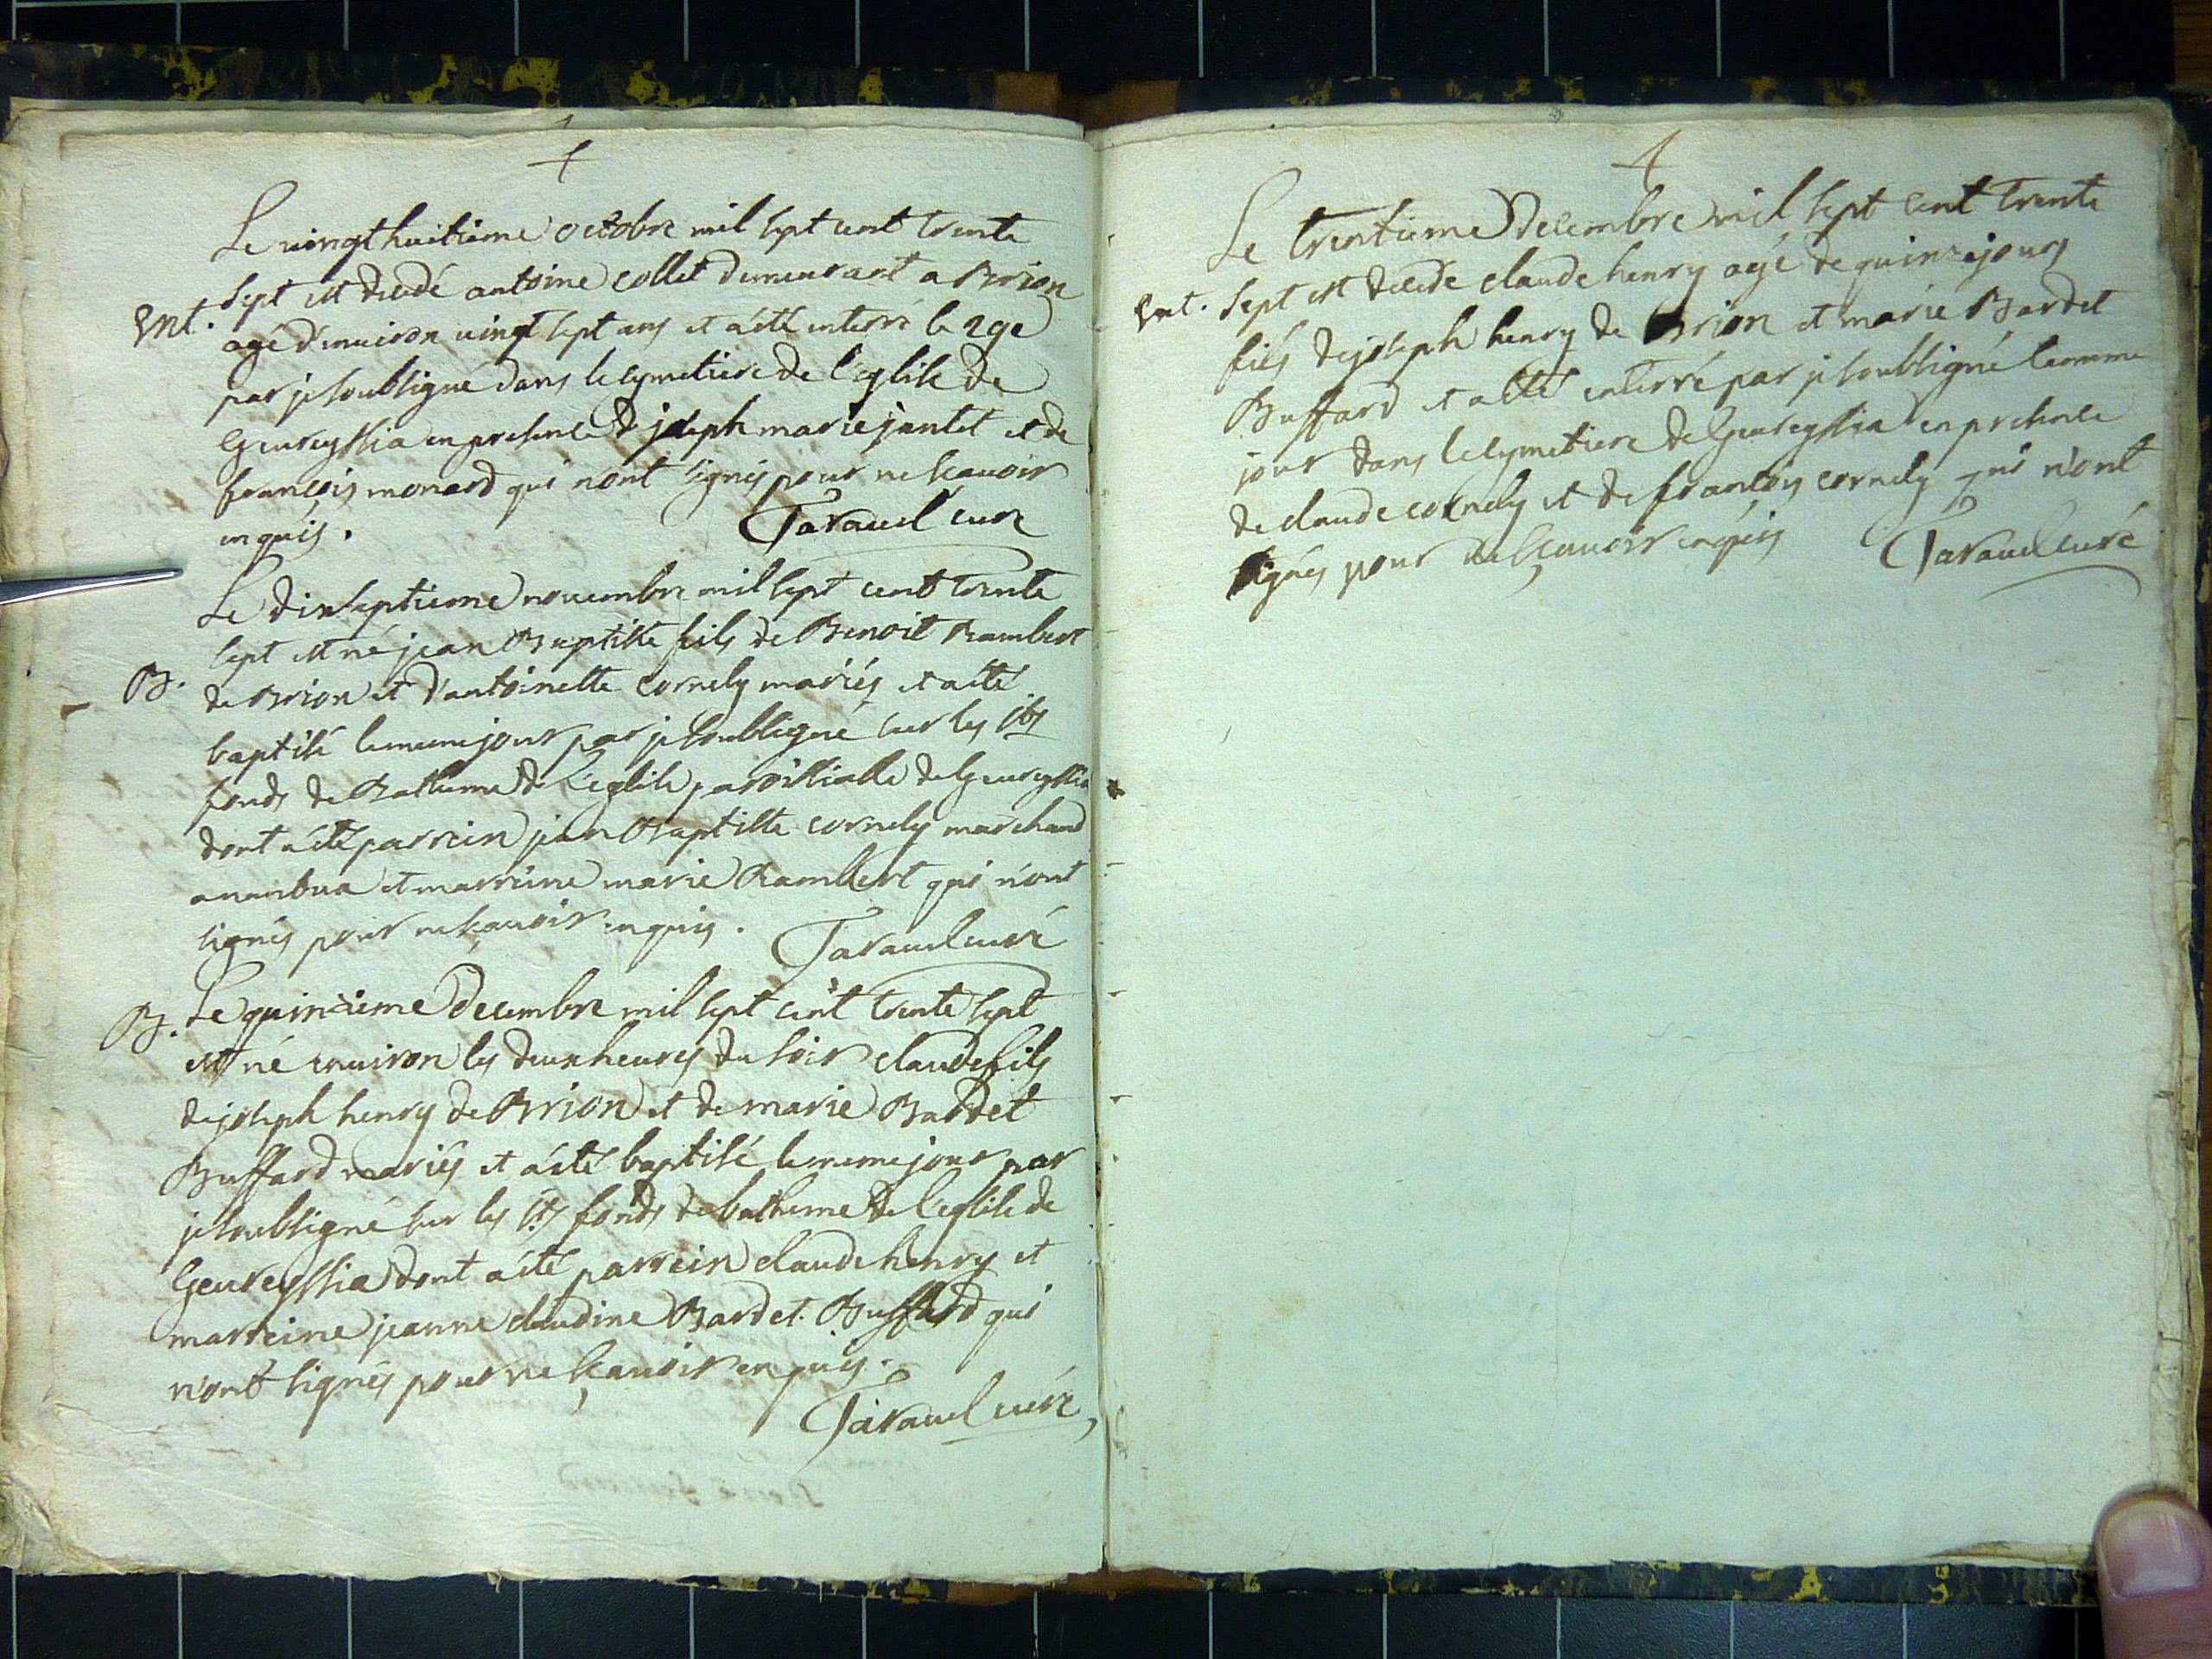 Le vingt huitieme octobre mil sept cent trente
Ent. sept est decedé antoine collet demeurant a Brion
agé d'environ vingt sept ans et a été enterré le 29e
par je soubsigné dans le cymetiere de l'eglise de
Geureyssia en presence de joseph marie jantet et de
françois monard qui n'ont signés pour ne scavoir
enquis. Taravel curé
Le dix septieme novembre mil sept cent trente
sept est né jean Baptiste fils de Benoit Rambert
B. de Brion et d'antoinette cornely mariés et a été
baptisé le meme jour par je soubsigné sur les sts
fonds de Batheme de L'eglise paroissialle de Geureyssia
dont a été parrein jean Baptiste cornely marchand
a nantua et marreine marie Rambert qui n'ont
signés pour ne scavoir enquis. Taravel curé
B. Le quinzieme decembre mil sept cent trente sept
est né environ les deux heures du soir claude fils
de joseph henry de Brion et de marie Bardet
Buffard mariés et a été baptisé le meme jour par
je soubsigné sur les sts fonds de batheme de l'eglise de
Geureyssia dont a été parrein claude henry et
marreine jeanne claudine Bardet Buffard qui
n'ont signés pour ne sçavoir enquis.
Taravel curé
Le trentieme Decembre mil sept cent trente
Ent. sept est decedé claude henry agé de quinze jours
fils de joseph henry de Brion et marie Bardet
Buffard et a été enterré par je soubsigné le meme
jour dans le cymetiere de Geureyssia en presence
de claude cornely et de françois cornely qui n'ont
signés pour ne sçavoir enquis Taravel curé